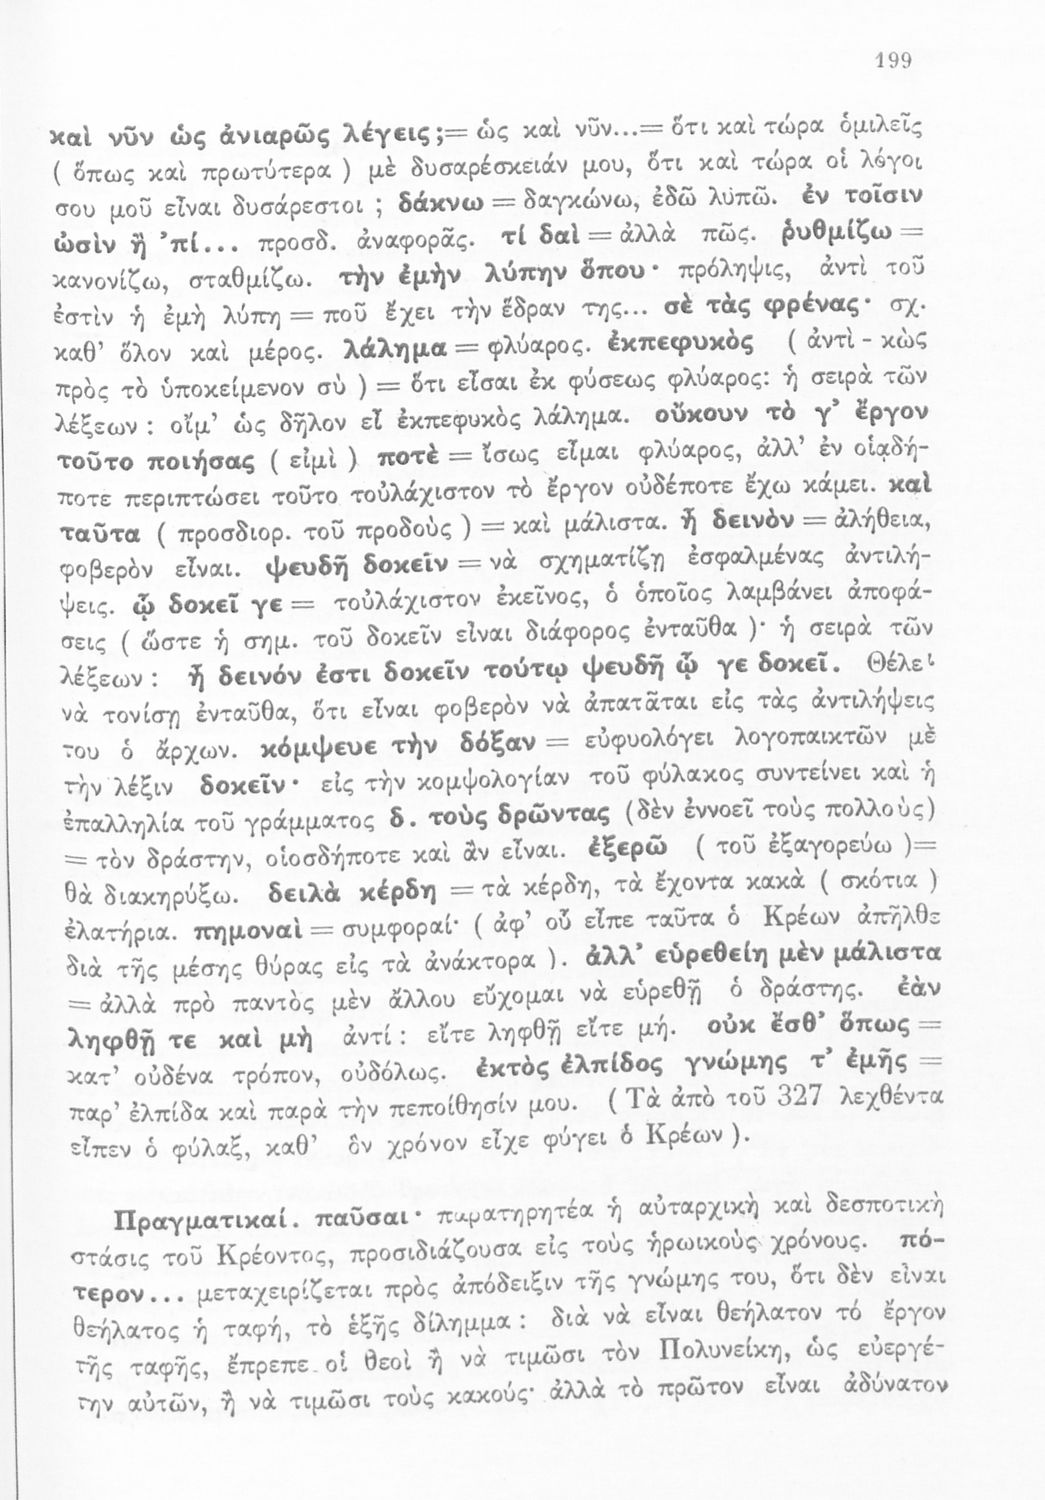 199
καὶ νῦν ὡς ἀνιαρῶς λέγεις;= ὡς καὶ νῦν...= ὅτι καὶ τώρα ὁμιλεῖς
( ὅπως καὶ πρωτύτερα ) μὲ δυσαρέσκειάν μου, ὅτι καὶ τώρα οἱ λόγοι
σου μοῦ εἶναι δυσάρεστοι ; δάκνω = δαγκώνω, ἐδῶ λυπῶ. ἐν τοῖσιν
ὠσὶν ἢ 'πί... προσδ. ἀναφορᾶς. τί δαὶ = ἀλλὰ πῶς. ῥυθμίζω =
κανονίζω, σταθμίζω. τὴν ἐμὴν λύπην ὅπου· πρόληψις, ἀντὶ τοῦ
ἐστὶν ἡ ἐμὴ λύπη = ποῦ ἔχει τὴν ἕδραν της... σὲ τὰς φρένας· σχ.
καθ' ὅλον καὶ μέρος. λάλημα = φλύαρος. ἐκπεφυκὸς ( ἀντὶ - κὼς
πρὸς τὸ ὑποκείμενον σὺ ) = ὅτι εἶσαι ἐκ φύσεως φλύαρος: ἡ σειρὰ τῶν
λέξεων : οἴμ' ὡς δῆλον εἶ ἐκπεφυκὸς λάλημα. οὔκουν τὸ γ' ἔργον
τοῦτο ποιήσας ( εἰμὶ ) ποτὲ = ἴσως εἶμαι φλύαρος, ἀλλ' ἐν οἱᾳδή-
ποτε περιπτώσει τοῦτο τοὐλάχιστον τὸ ἔργον οὐδέποτε ἔχω κάμει. καὶ
ταῦτα ( προσδιορ. τοῦ προδοὺς ) = καὶ μάλιστα. ἦ δεινὸν = ἀλήθεια,
φοβερὸν εἶναι. ψευδῆ δοκεῖν = νὰ σχηματίζῃ ἐσφαλμένας ἀντιλή-
ψεις. ᾧ δοκεῖ γε = τοὐλάχιστον ἐκεῖνος, ὁ ὁποῖος λαμβάνει ἀποφά-
σεις ( ὥστε ἡ σημ. τοῦ δοκεῖν εἶναι διάφορος ἐνταῦθα )· ἡ σειρὰ τῶν
λέξεων : ἦ δεινόν ἐστι δοκεῖν τούτῳ ψευδῆ ᾧ γε δοκεῖ. Θέλει
νὰ τονίσῃ ἐνταῦθα, ὅτι εἶναι φοβερὸν νὰ ἀπατᾶται εἰς τὰς ἀντιλήψεις
του ὁ ἄρχων. κόμψευε τὴν δόξαν = εὐφυολόγει λογοπαικτῶν μὲ
τὴν λέξιν δοκεῖν· εἰς τὴν κομψολογίαν τοῦ φύλακος συντείνει καὶ ἡ
ἐπαλληλία τοῦ γράμματος δ. τοὺς δρῶντας (δὲν ἐννοεῖ τοὺς πολλοὺς)
= τὸν δράστην, οἱοσδήποτε καὶ ἂν εἶναι. ἐξερῶ ( τοῦ ἐξαγορεύω )=
θὰ διακηρύξω. δειλὰ κέρδη = τὰ κέρδη, τὰ ἔχοντα κακὰ ( σκότια )
ἐλατήρια. πημοναὶ = συμφοραί· ( ἀφ' οὗ εἶπε ταῦτα ὁ Κρέων ἀπῆλθε
διὰ τῆς μέσης θύρας εἰς τὰ ἀνάκτορα ). ἀλλ' εὑρεθείη μὲν μάλιστα
= ἀλλὰ πρὸ παντὸς μὲν ἄλλου εὔχομαι νὰ εὑρεθῇ ὁ δράστης. ἐὰν
ληφθῇ τε καὶ μὴ ἀντί : εἴτε ληφθῇ εἴτε μή. οὐκ ἔσθ' ὅπως =
κατ' οὐδένα τρόπον, οὐδόλως. ἐκτὸς ἐλπίδος γνώμης τ' ἐμῆς =
παρ' ἐλπίδα καὶ παρὰ τὴν πεποίθησίν μου. ( Τὰ ἀπὸ τοῦ 327 λεχθέντα
εἶπεν ὁ φύλαξ, καθ' ὃν χρόνον εἶχε φύγει ὁ Κρέων ).
Πραγματικαί. παῦσαι· παρατηρητέα ἡ αὐταρχικὴ καὶ δεσποτικὴ
στάσις τοῦ Κρέοντος, προσιδιάζουσα εἰς τοὺς ἡρωικοὺς χρόνους. πό-
τερον... μεταχειρίζεται πρὸς ἀπόδειξιν τῆς γνώμης του, ὅτι δὲν εἶναι
θεήλατος ἡ ταφή, τὸ ἑξῆς δίλημμα : διὰ νὰ εἶναι θεήλατον τό ἔργον
τῆς ταφῆς, ἔπρεπε οἱ θεοὶ ἢ νὰ τιμῶσι τὸν Πολυνείκη, ὡς εὐεργέ-
την αὐτῶν, ἢ νὰ τιμῶσι τοὺς κακούς· ἀλλὰ τὸ πρῶτον εἶναι ἀδύνατον